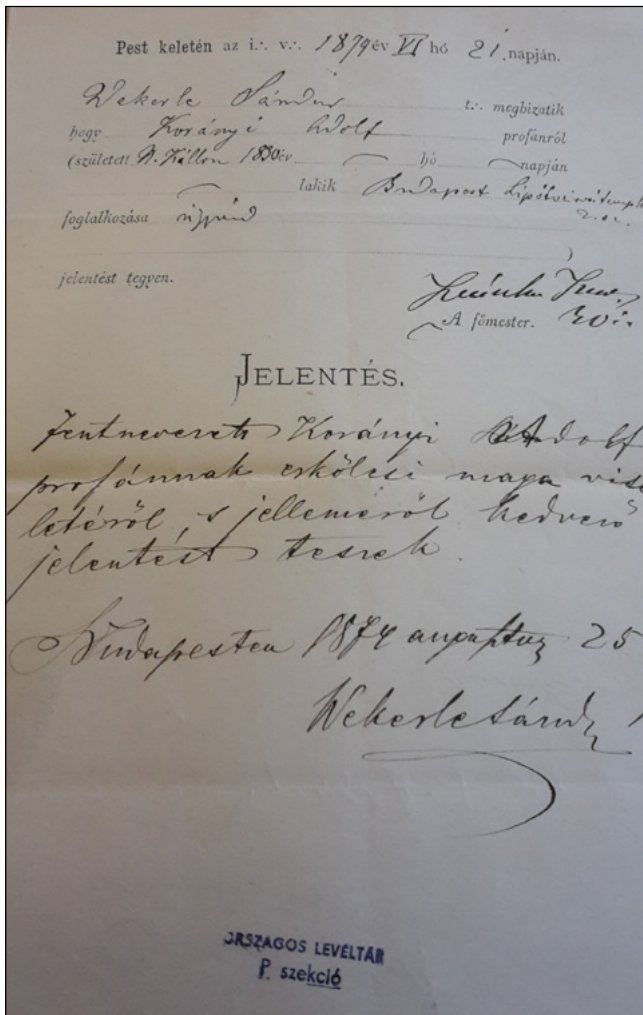 Pest keletén az i∴ v∴ 1874 év VI hó 21. napján.
Wekerle Sándor t∴ megbizatik
hogy Korányi Adolf profánról
(született N. Kállon 1830 év hó napján
lakik Budapest
foglalkozása
jelentést tegyen.
A főmester.
JELENTÉS.
Fentnevezett Korányi Adolf
profánnak erkölcsi maga vise
letéről, s jelleméről kedvező
jelentést teszek.
Budapesten 1874 augusztus 25
Wekerle Sándor
ORSZÁGOS LEVÉLTÁR
P. szekció